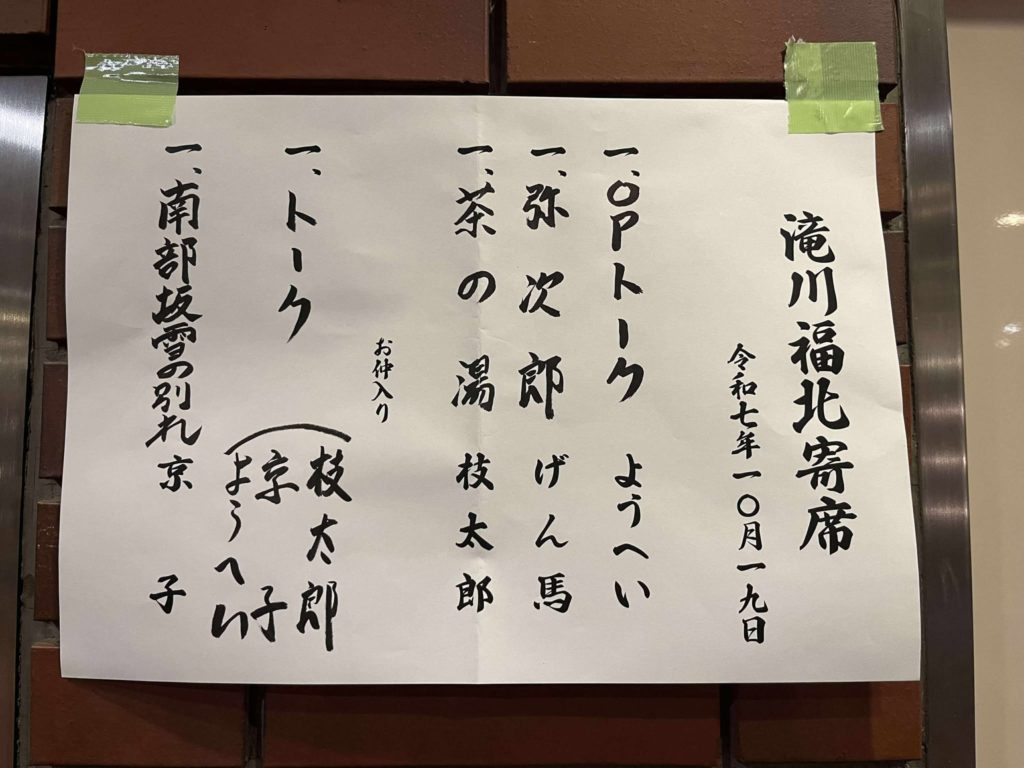 滝川福北寄席
令和七年一〇月一九日
一、OPトーク ようへい
一、弥次郎 げん馬
一、茶の湯 枝太郎
お仲入り
一、トーク 枝太郎
京子
ようへい
一、南部坂雪の別れ 京子